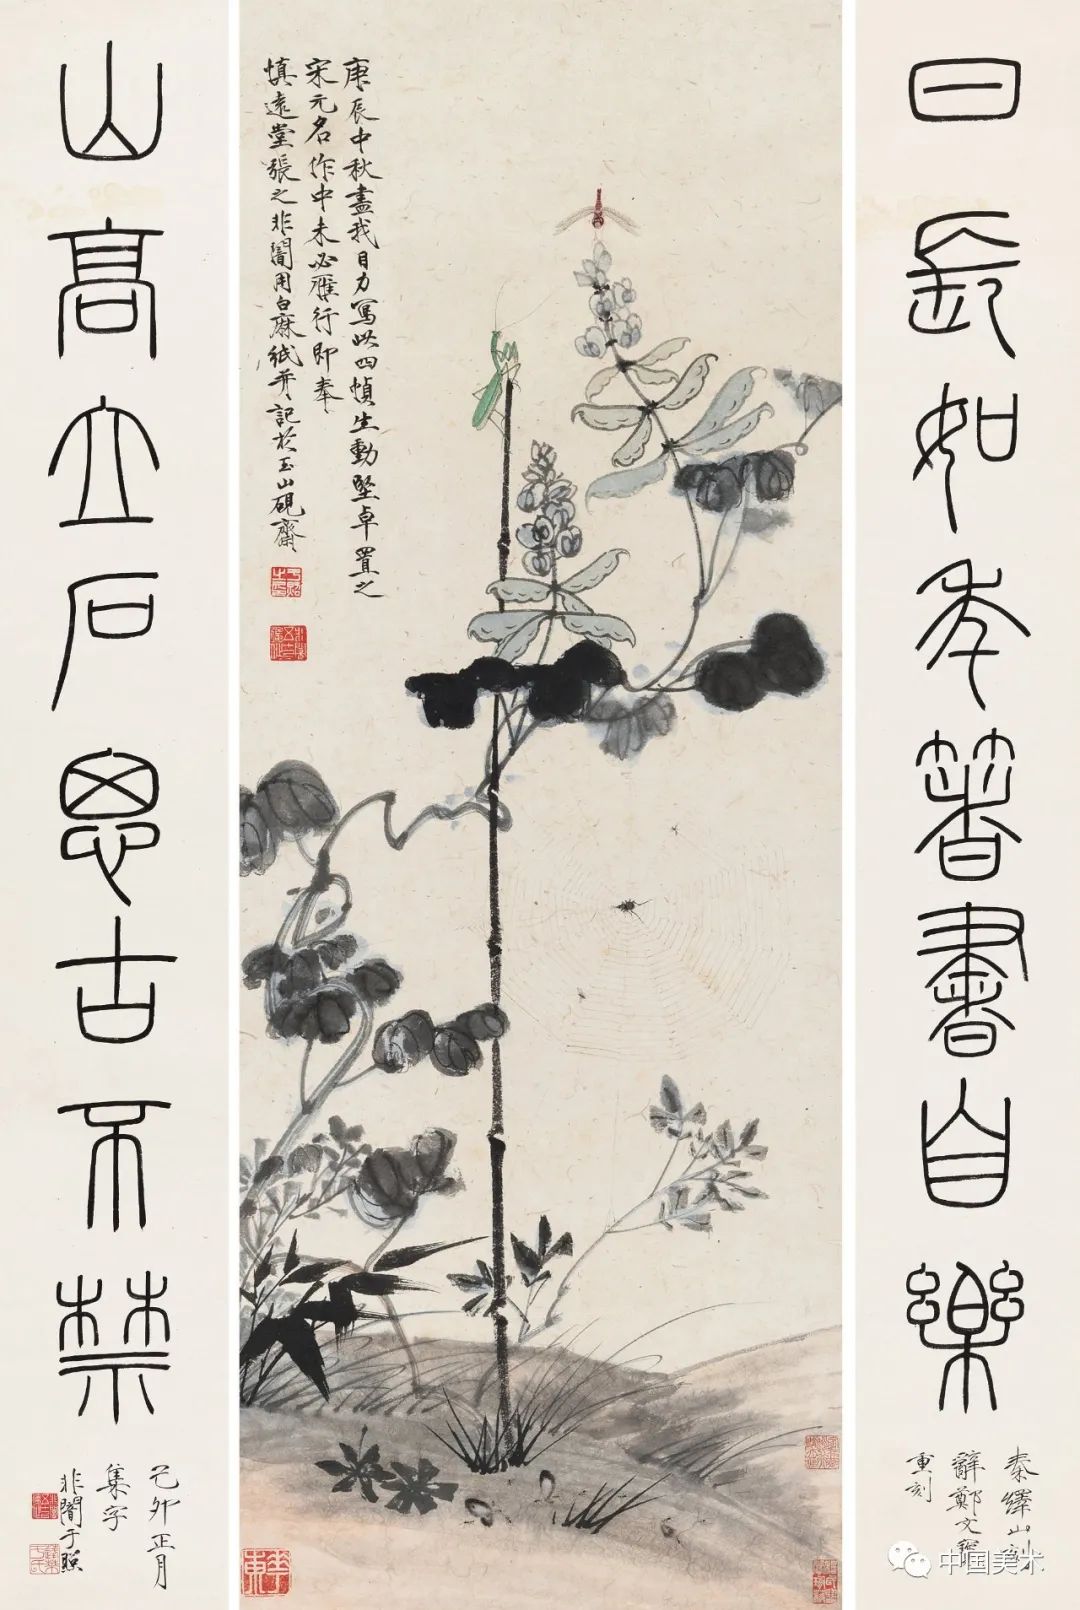 日長如年著書自樂
秦繹山刻
辭鄭文寶
重刻
庚辰中秋盡我目力寫此四幀生動堅卓置之
宋元名作中未必雁行即奉
慎遠堂張之非闇用白麻紙并記於玉山硯齋
山高立石思古不禁
己卯正月
集字
非闇于照
中国美术